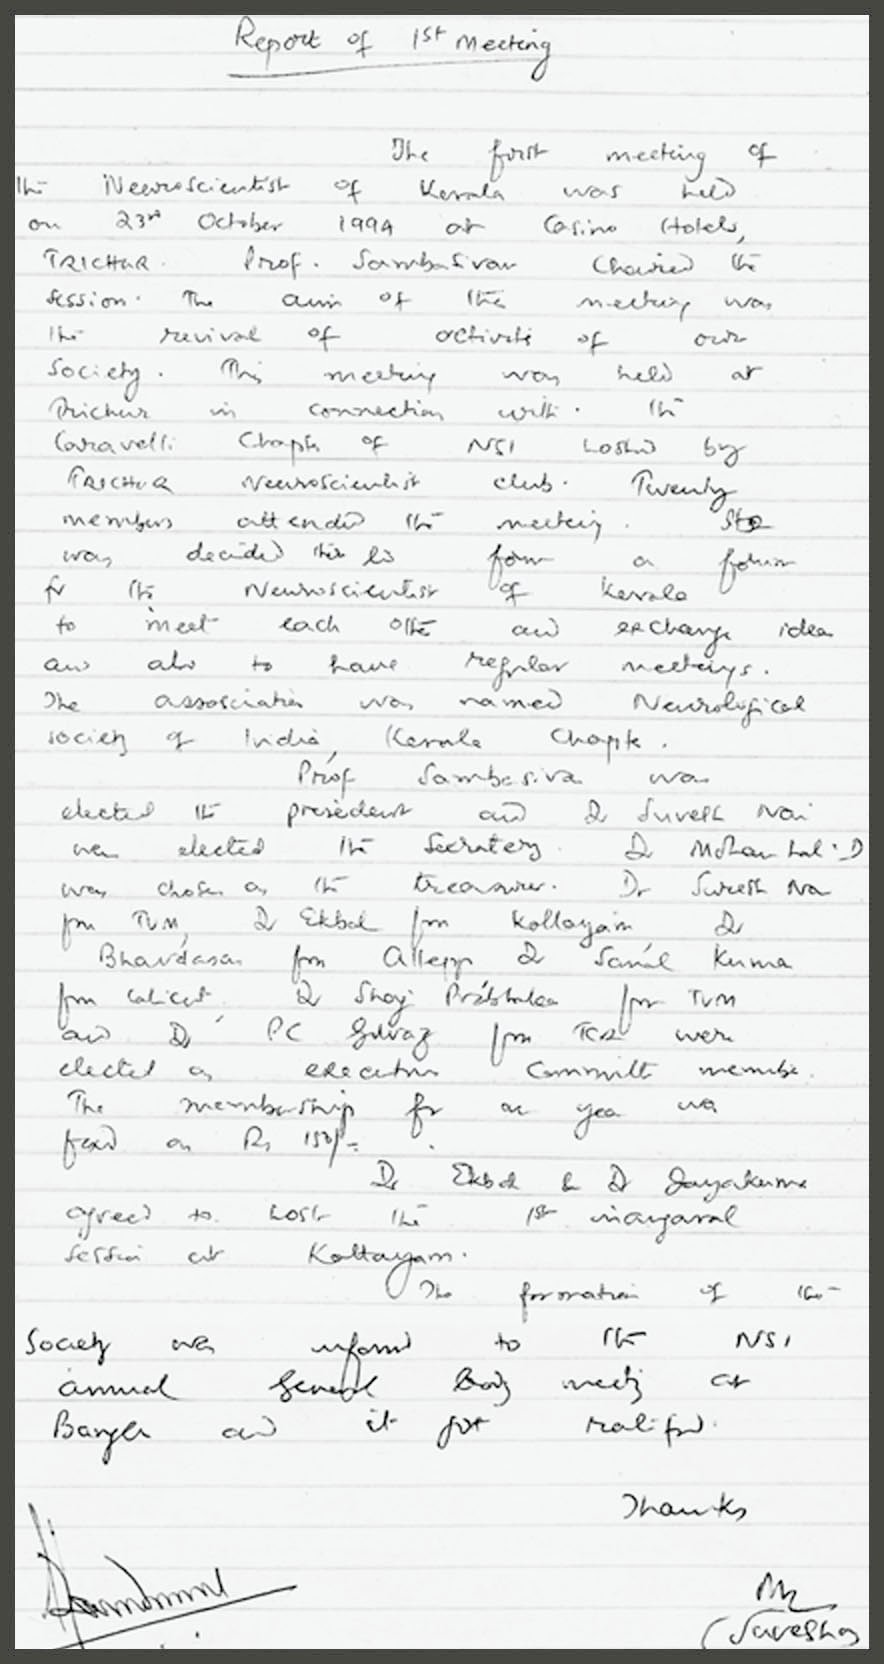 Report of 1st Meeting
The first meeting of
the Neuroscientist of Kerala was held
on 23rd October 1994 at Casino Hotels,
TRICHUR. Prof. Sambasivan Chaired the
session. The aim of the meeting was
the revival of of our
Society. This meeting was held at
Trichur in connection with. the
Chapter of NSI hosted by
TRICHUR Neuroscientist club. Twenty
members attended the meeting.
was decided to form a forum
for the Neuroscientist of Kerala
to meet each other and exchange idea
and also to have regular meetings.
The association was named Neurological
society of India, Kerala Chapter.
Prof Sambasiva was
elected the president and Dr Suresh Nair
was elected the Secretary. Dr Mohan Lal. D
was chosen as the treasurer. Dr Suresh Na
from TVM, Dr Ekbal from Kottayam Dr
Bhavdasan from Allepp Dr Sanal Kumar
from Calicut. Dr Shaji Prabhakar from TVM
and Dr PC from TCR were
elected as executive Committe membe.
The membership for an year was
fixed as Rs 150/-.
Dr Ekbal & Dr Jayakumar
agreed to host the 1st inaugaral
session at Kottayam.
The formation of the
Society was informed to the NSI
annual General Body meeting at
and it got ratified.
Thanks
(Suresh